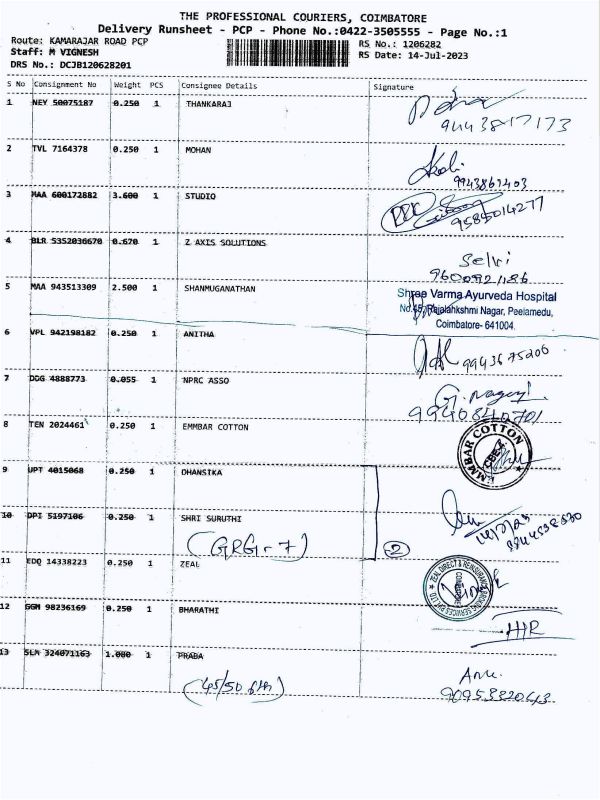 THE PROFESSIONAL COURIERS, COIMBATORE
Delivery Runsheet - PCP - Phone No.:0422-3505555 - Page No.:1
Route: KAMARAJAR ROAD PCP RS No.: 1206282
Staff: M VIGNESH RS Date: 14-Jul-2023
DRS No.: DCJB120628201
S No Consignment No Weight PCS Consignee Details Signature
1 NEY 50075187 0.250 1 THANKARAJ
9443817173
2 TVL 7164378 0.250 1 MOHAN
9943867403
3 MAA 600172882 3.600 1 STUDIO
9585014277
4 BLR 5352036670 0.670 1 Z AXIS SOLUTIONS
Selvi
9600921186
5 MAA 943513309 2.500 1 SHANMUGANATHAN
Shree Varma Ayurveda Hospital
No.45, Rajalahkshmi Nagar, Peelamedu,
Coimbatore- 641004.
6 VPL 942198182 0.250 1 ANITHA
9943675206
7 DGG 4888773 0.055 1 NPRC ASSO
9940840701
8 TEN 2024461 0.250 1 EMMBAR COTTON
EMMBAR COTTON
CBE-4
9 UPT 4015068 0.250 1 DHANSIKA
10 DPI 5197106 0.250 1 SHRI SURUTHI
14/7/23
(GRG-7) 2
11 EDQ 14338223 0.250 1 ZEAL
12 GGM 98236169 0.250 1 BHARATHI
HR
13 SLM 324071163 1.000 1 PRABA
(45/50 6th)
9095332043